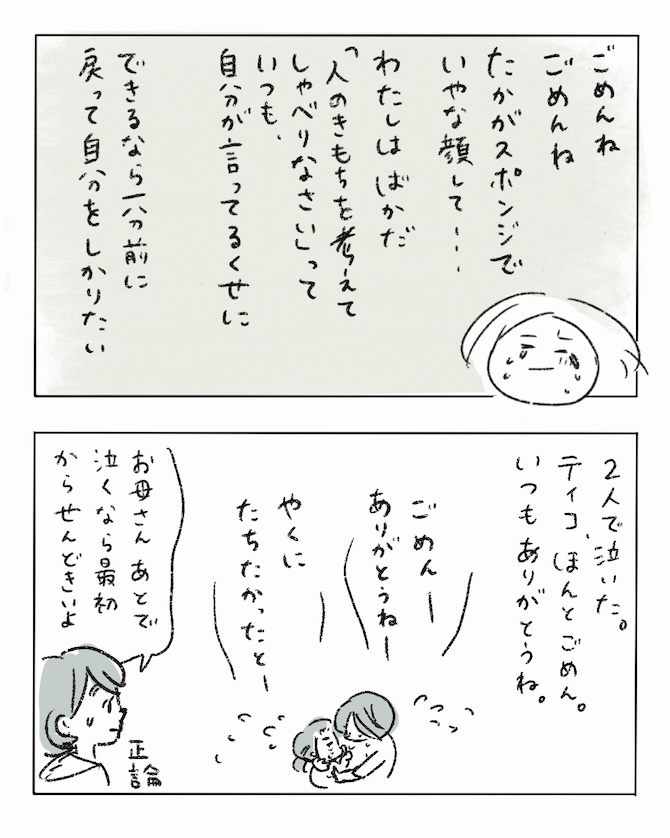 ごめんね
ごめんね
たかがスポンジで
いやな顔して・・・
わたしはばかだ
「人のきもちを考えて
しゃべりなさい」って
いつも、
自分が言ってるくせに
できるなら一分前に
戻って自分をしかりたい
2人で泣いた。
ティコ、ほんとごめん。
いつもありがとうね。
ごめんー
ありがとうねー
やくに
たちたかったとー
お母さんあとで
泣くなら最初
からせんどきいよ
正論